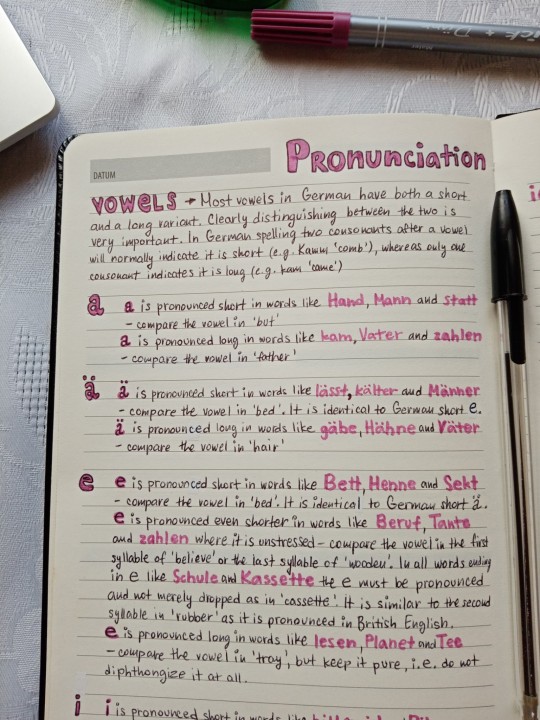 DATUM
PRONUNCIATION
VOWELS → Most vowels in German have both a short
and a long variant. Clearly distinguishing between the two is
very important. In German spelling two consonants after a vowel
will normally indicate it is short (e.g. Kamm 'comb'), whereas only one
consonant indicates it is long (e.g. kam 'came')
a a is pronounced short in words like Hand, Mann and statt
- compare the vowel in 'but'
a is pronounced long in words like kam, Vater and zahlen
- compare the vowel in 'father'
ä ä is pronounced short in words like lässt, kälter and Männer
- compare the vowel in 'bed'. It is identical to German short e.
ä is pronounced long in words like gäbe, Hähne and Väter
- compare the vowel in 'hair'
e e is pronounced short in words like Bett, Henne and Sekt
- compare the vowel in 'bed'. It is identical to German short ä.
e is pronounced even shorter in words like Beruf, Tante
and zahlen where it is unstressed - compare the vowel in the first
syllable of 'believe' or the last syllable of 'wooden'. In all words ending
in e like Schule and Kassette the e must be pronounced
and not merely dropped as in 'cassette'. It is similar to the second
syllable in 'rubber' as it is pronounced in British English.
e is pronounced long in words like lesen, Planet and Tee
- compare the vowel in 'tray', but keep it pure, i.e. do not
diphthongize it at all.
i i is pronounced short in words like